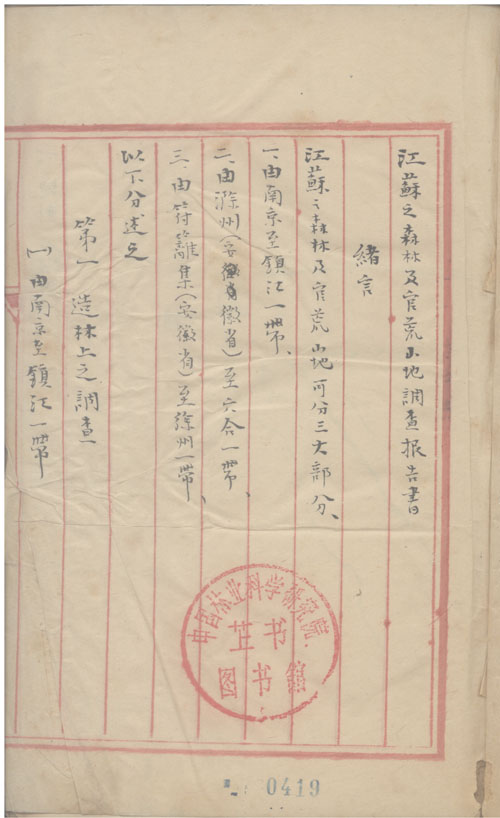 江蘇之森林及官荒山地調查报告書
緒言
江蘇之森林及官荒山地可分三大部分、
一、由南京至鎮江一帶、
二、由滁州(安徽省)至六合一帶、
三、由符離集(安徽省)至徐州一帶、
以下分述之
第一 造林上之調查
(一)由南京至鎮江一帶
中国林业科学研究院
图书馆
0419